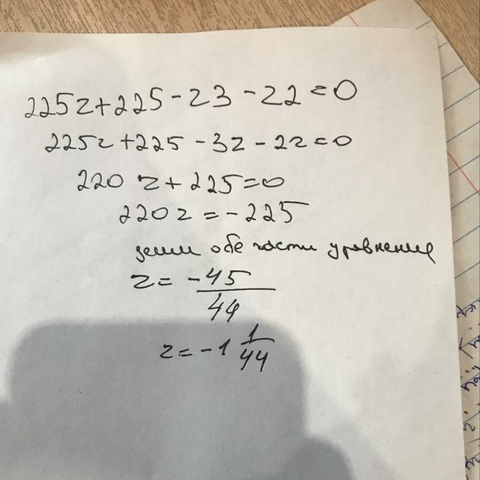 225z+225-z3-z2=0
225z+225-3z-2z=0
220 z+225=0
220z=-225
делим обе части уравнение
z= -45/44
z=-1 1/44